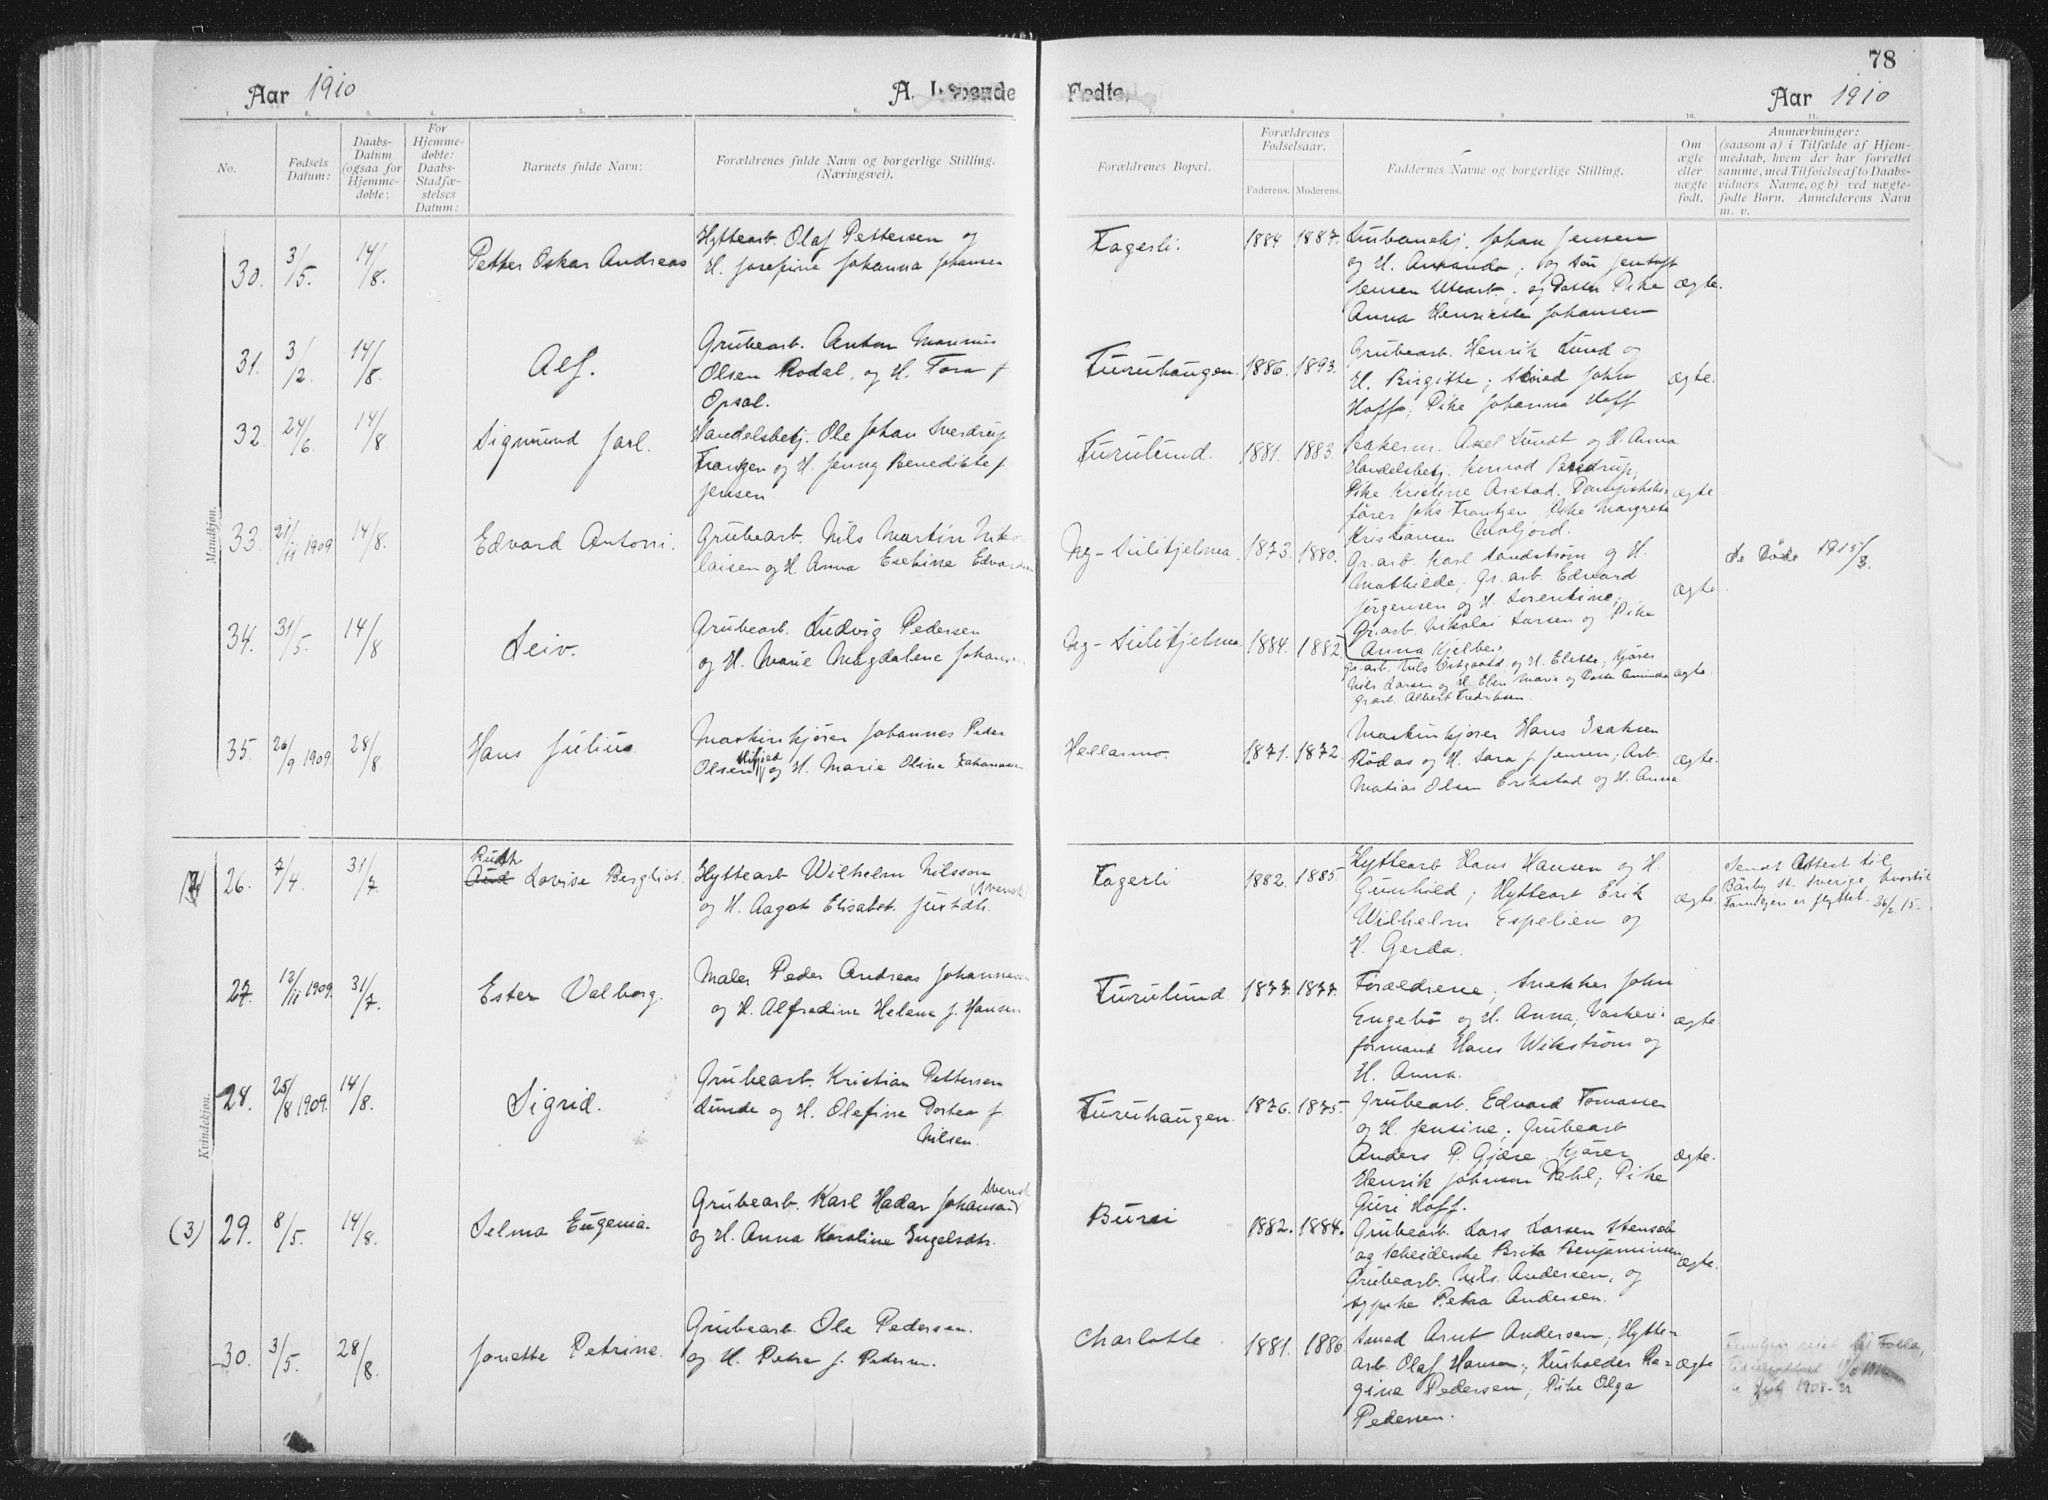 78
Aar 1910
A. Levende
Fødte.
Aar 1910
1. 2. 3. 4. 5. 6. 7. 8. 9. 10. 11.
No.
Fødsels
Datum:
Daabs-
Datum
(ogsaa for
Hjemme-
døbte:
For
Hjemme-
døbte:
Daabs-
Stadfæ-
stelses
Datum:
Barnets fulde Navn:
Forældrenes fulde Navn og borgerlige Stilling.
(Næringsvei).
Forældrenes Bopæl.
Forældrenes
Fødselsaar.
Faderens. Moderens.
Faddernes Navne og borgerlige Stilling.
Om
ægte
eller
uægte
født.
Anmærkninger:
(saasom a) i Tilfælde af Hjem-
medaab, hvem der har forrettet
samme, med Tilføielse af to Daabs-
vidners Navne, og b) ved uægte-
fødte Børn. Anmelderens Navn
m. v.
Mandkjøn.
30. 3/5. 14/8. Petter Oskar Andreas
Hyttearb. Olaf Pettersen og
H. Josefine Johanna Johansen
Fagerli. 1884 1887.
Johan Jensen
og H. Amanda; og
Jensen; og Pike
Anna Henriette Johansen
ægte.
31. 3/2. 14/8. Alf.
Grubearb. Anton Marinius
Olsen Rodal, og H. Tora f.
Opsal.
Furuhaugen. 1886. 1893.
Grubearb. Henrik Lund og
H. Birgitte; Smed John
Hoff; Pike Johanna Hoff
ægte.
32. 24/6. 14/8. Sigmund Jarl.
Handelsbetj. Ole Johan Sverdrup
Frantzen og H. Jenny Benedikte f.
Jensen.
Furulund. 1881. 1883.
Axel Lundt og H. Anna
Handelsbetj. Konrad
Pike Kristine Arstad.
fører Johs Frantzen, Pike Margrete
Kristiansen Misfjord.
ægte
33. 21/11 1909 14/8. Edvard Antoni.
Grubearb. Nils Martin Niko-
laisen og H. Anna Esekine Edvardsen
Ny-Sulitjelma 1873. 1880.
Gr.arb. Karl Sandstrøm og H.
Mathilde; Gr.arb. Edvard
Jørgensen og H. Lorentine;
Gr.arb. Nikolai Larsen og Pike
Anna Kjelberg.
ægte
Se Døde 1915/3.
34. 31/5. 14/8 Leiv.
Grubearb. Ludvig Pedersen
og H. Marie Magdalene Johansen
Ny-Sulitjelma 1884. 1882.
gr.arb. Nils Østgaard og H. Elette; Kjører
Nils Larsen og H. Olea Marie og
grarb. Albert Fredriksen.
ægte.
35. 26/9 1909. 28/8 Hans Julius
Maskinkjører Johannes Peder
Olsen og H. Marie Olina Johansen
Hellarmo. 1871. 1872.
Maskinkjører Hans Isaksen
Rødås og H. Sara f. Jensen; Arb.
Matias Olsen Erikstad og H. Anna
ægte.
Kvindekjøn.
26. 7/4. 31/7. Ruth
Aud Lovise Bergliot.
Hyttearb Wilhelm Nilsson
(Svensk)
og H. Aagot Elisabet
Fagerli 1882. 1885.
Hyttearb Hans Hansen og H.
Gunhild; Hyttearb Erik
Wilhelm Espelien og
H. Gerda.
ægte.
Sendt Attest til
Bärby st. Sverige, hvortil
Familjen er flyttet. 26/2 15.
27. 12/11 1909. 31/7. Ester Valborg.
Maler Peder Andreas Johannesen
og H. Alfredine Helene f. Hansen
Furulund. 1877. 1877.
Forældrene; Snekker John
Engebø og H. Anna; Vaskeri-
formand Hans Wikstrøm og
H. Anna.
ægte
28. 25/8 1909. 14/8. Sigrid.
Grubearb. Kristian Pettersen
Lunde og H. Olefine Dortea f.
Nilsen.
Furuhaugen. 1876. 1875.
Grubearb. Edvard Tomassen
og H. Jensine; Grubearb
Anders P. Gjære, Kjører
Henrik Johnsen Dahl; Pike
Guri Hoff.
ægte.
(3) 29. 8/5. 14/8. Selma Eugenia.
Grubearb. Karl Hadar Johansson
Svensk
og H. Anna Karoline Ingelsdtr.
Bursi 1882. 1884.
Grubearb. Lars Larsen
og Arbeiderske Brita Benjaminsen,
Grubearb. Nils Andersen, og
sypike Petra Andersen.
ægte.
30. 3/5. 28/8. Jonette Petrine.
Grubearb. Ole Pedersen.
og H. Petra f. Pedersen.
Charlotte 1881. 1886
Smed Arnt Andersen; Hytte-
arb. Olaf Hansen; Husholder Ra-
gine Pedersen; Pike Olga
Pedersen.
ægte